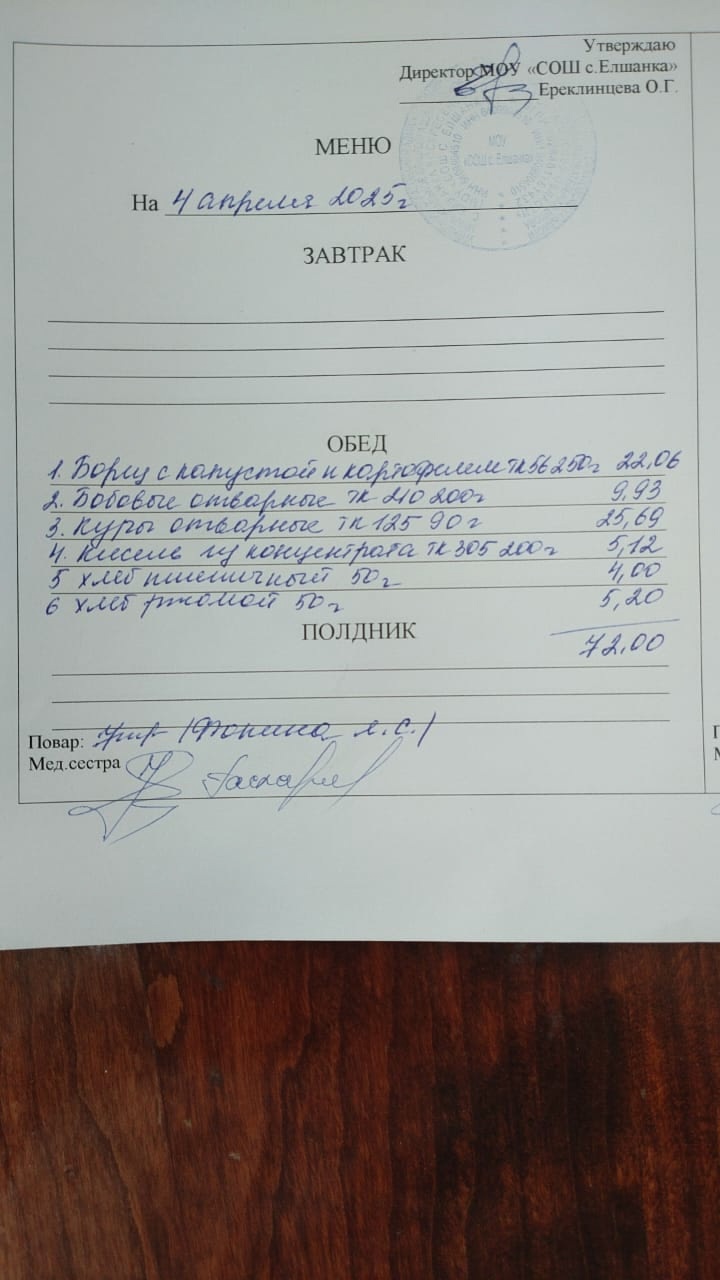 Утверждаю
Директор МОУ «СОШ с.Елшанка»
Ереклинцева О.Г.
МОУ
«СОШ с. Елшанка»
МЕНЮ
На 4 апреля 2025г
ЗАВТРАК
ОБЕД
1. Борщ с капустой и картофелем тк56 250г 22,06
2. Бобовые отварные тк 210 200г 9,93
3. Куры отварные тк 125 90г 25,69
4. Кисель из концентрата тк 305 200г 5,12
5 хлеб пшеничный 50г 4,00
6 хлеб ржаной 50г 5,20
ПОЛДНИК
72.00
Повар: (Фонина л.С.)
Мед.сестра